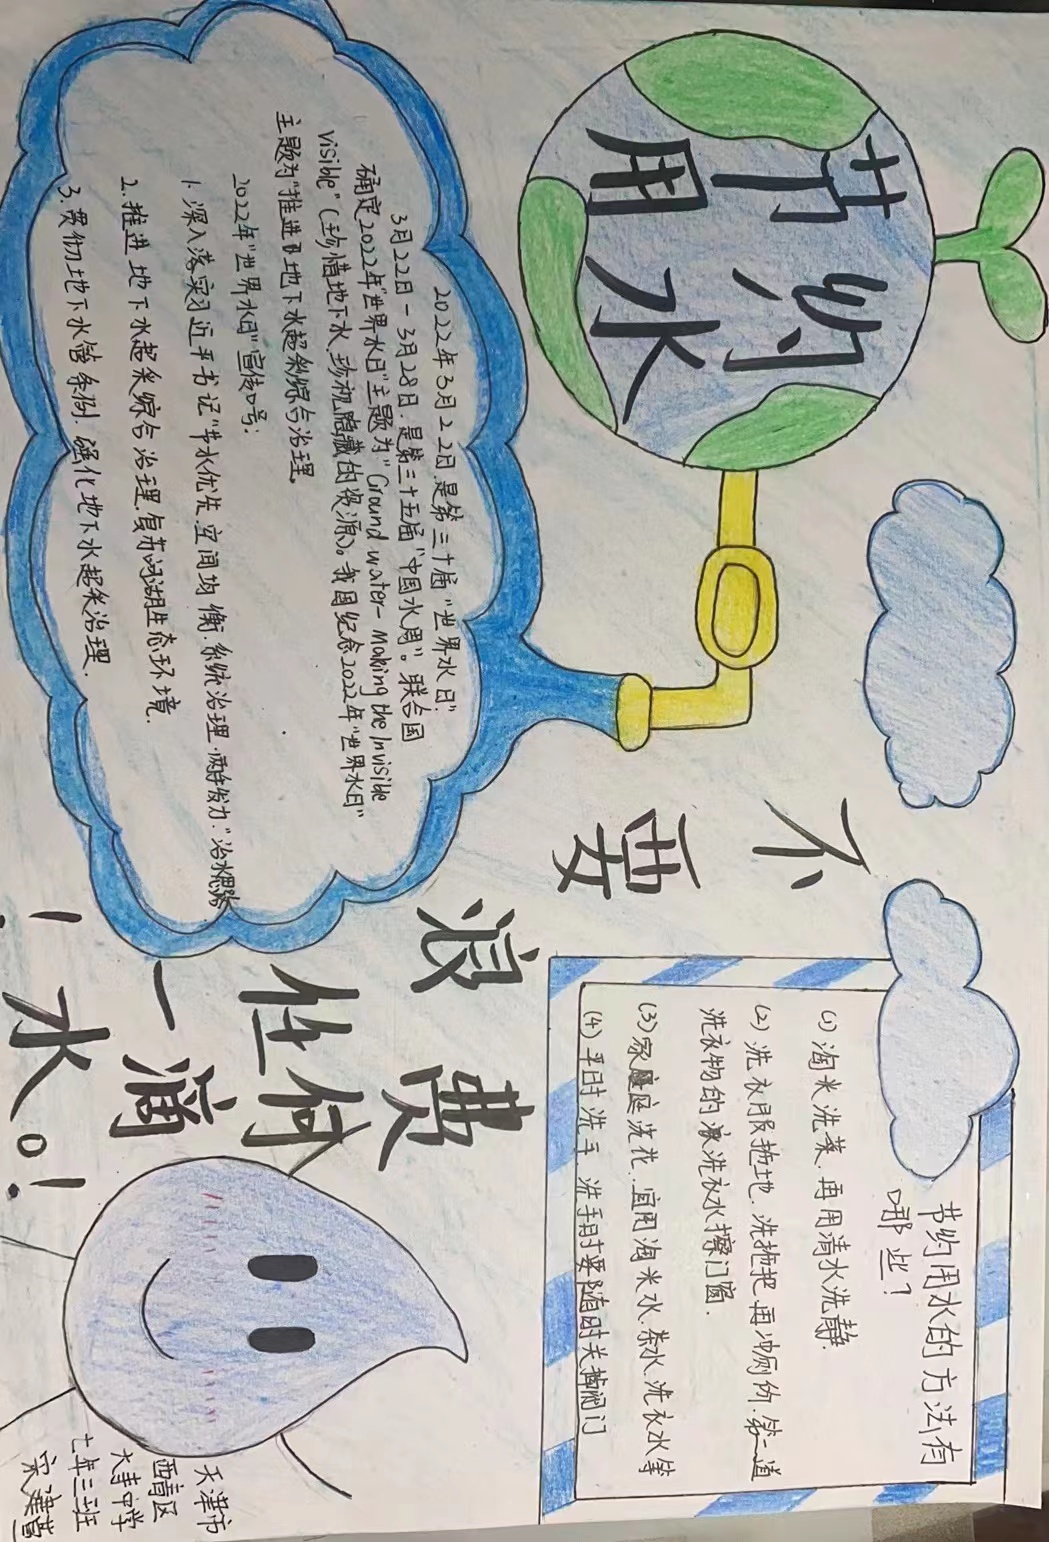 节约
用水
2022年3月22日,是第三十届“世界水日”,
3月22日-3月28日,是第三十五届“中国水周”。联合国
确定2022年“世界水日”主题为“Ground water- making the Invisible
visible”(珍惜地下水,珍视隐藏的资源)。我国纪念2022年“世界水日”
主题为“推进地下水超采综合治理。
2022年“世界水日”宣传口号:
1.深入落实习近平书记“节水优先、空间均衡、系统治理、两手发力”治水思路
2.推进地下水超采综合治理,复苏河湖生态环境.
3.贯彻地下水管条例.强化地下水超采治理.
不
要
浪费
任何
一滴
!水。!
节约用水的方法有
哪些?
(1)淘米洗菜,再用清水洗静.
(2)洗衣服拖地、洗拖把再冲厕所.第二道
洗衣物的漂洗衣水擦门窗.
(3)家庭洗花,宜用淘米水、茶水、洗衣水等
(4)平时洗手,洗手时要随时关掉闸门
天津市
西青区
大寺中学
七年三班
宋建